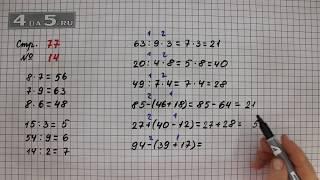 4DA5.RU
Стр. 77
№ 14
8·7=56
7·9=63
8·6=48
15:3=5
54:9=6
14:2=7
1 2
63:9·3=7·3=21
1 2
20:4·8=5·8=40
1 2
49:7·4=7·4=28
2 1
85-(46+18)=85-64=21
2 1
27+(40-12)=27+28=5
2 1
94-(39+17)=